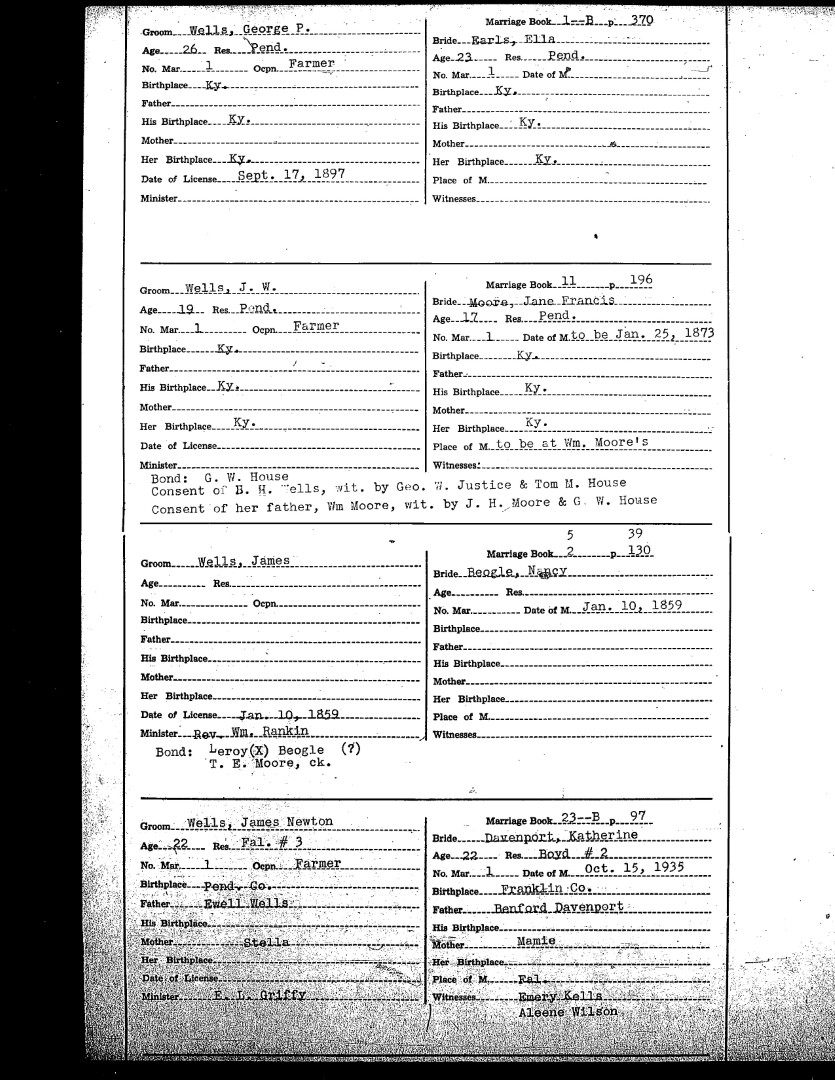 Groom Wells, George P.
Age 26 Res. Pend.
No. Mar. 1 Ocpn. Farmer
Birthplace Ky.
Father
His Birthplace Ky.
Mother
Her Birthplace Ky.
Date of License Sept. 17, 1897
Minister
Marriage Book 1--B p 370
Bride Earls, Ella
Age 23 Res. Pend.
No. Mar. 1 Date of M.
Birthplace Ky.
Father
His Birthplace Ky.
Mother
Her Birthplace Ky.
Place of M.
Witnesses
Groom Wells, J. W.
Age 19 Res. Pend.
No. Mar. 1 Ocpn. Farmer
Birthplace Ky.
Father
His Birthplace Ky.
Mother
Her Birthplace Ky.
Date of License
Minister
Marriage Book 11 p 196
Bride Moore, Jane Francis
Age 17 Res. Pend.
No. Mar. 1 Date of M. to be Jan. 25, 1873
Birthplace Ky.
Father
His Birthplace Ky.
Mother
Her Birthplace Ky.
Place of M. to be at Wm. Moore's
Witnesses
Bond: G. W. House
Consent of B. H. Wells, wit. by Geo. W. Justice & Tom M. House
Consent of her father, Wm Moore, wit. by J. H. Moore & G. W. House
Groom Wells, James
Age Res.
No. Mar. Ocpn.
Birthplace
Father
His Birthplace
Mother
Her Birthplace
Date of License Jan. 10, 1859
Minister Rev. Wm. Rankin
5 39
Marriage Book 2 p 130
Bride Beogle, Nancy
Age Res.
No. Mar. Date of M. Jan. 10, 1859
Birthplace
Father
His Birthplace
Mother
Her Birthplace
Place of M.
Witnesses
Bond: Leroy(X) Beogle (?)
T. E. Moore, ck.
Groom Wells, James Newton
Age 22 Res. Fal. # 3
No. Mar. 1 Ocpn. Farmer
Birthplace Pend. Co.
Father Ewell Wells
His Birthplace
Mother Stella
Her Birthplace
Date of License
Minister E. L. Griffy
Marriage Book 23--B p 97
Bride Davenport, Katherine
Age 22 Res. Boyd # 2
No. Mar. 1 Date of M. Oct. 15, 1935
Birthplace Franklin Co.
Father Benford Davenport
His Birthplace
Mother Mamie
Her Birthplace
Place of M. Fal.
Witnesses Emery Kells
Aleene Wilson